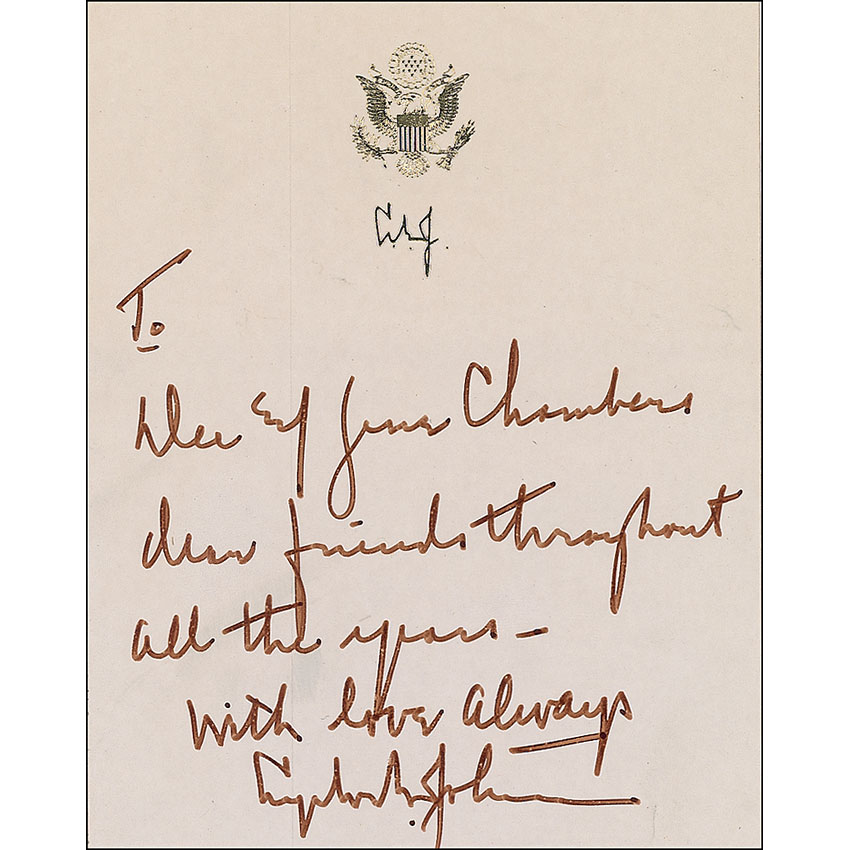 L.B.J.
To
Dee & Gene Chambers
dear friends throughout
all the years –
With love always
Lyndon B. Johnson